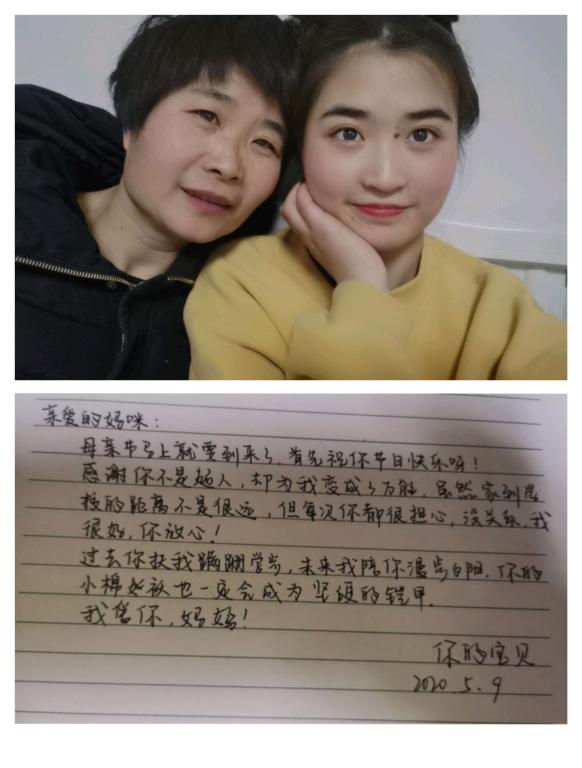 亲爱的妈咪：
母亲节马上就要到来了，首先祝你节日快乐呀！
感谢你不是超人，却为我变成了万能，虽然家到学
校的距离不是很远，但每次你都很担心，没关系，我
很好，你放心！
过去你扶我蹒跚学步，未来我陪你漫步夕阳，你的
小棉袄也一定会成为坚硬的铠甲．
我爱你，妈妈！
你的宝贝
2020.5.9